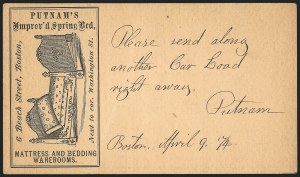 PUTNAM'S
Improv'd Spring Bed,
6 Beach Street, Boston,
Next to cor. Washington St.
MATTRESS AND BEDDING
WAREROOMS.
Please send along
another Car Load
right away.
Putnam
Boston. April 9. '74